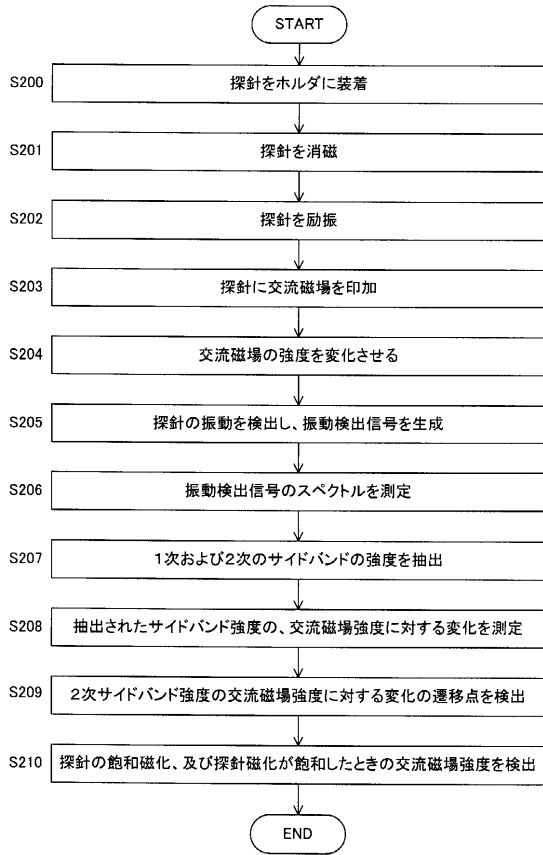 START
S200
探針をホルダに装着
S201
探針を消磁
S202
探針を励振
S203
探針に交流磁場を印加
S204
交流磁場の強度を変化させる
S205
探針の振動を検出し、振動検出信号を生成
S206
振動検出信号のスペクトルを測定
S207
１次および２次のサイドバンドの強度を抽出
S208
抽出されたサイドバンド強度の、交流磁場強度に対する変化を測定
S209
２次サイドバンド強度の交流磁場強度に対する変化の遷移点を検出
S210
探針の飽和磁化、及び探針磁化が飽和したときの交流磁場強度を検出
END